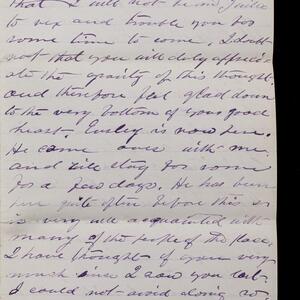 that I will not be in
to vex and trouble you for
some time to come. I doubt
not that you will duly appreci-
ate the gravity of this thought
and therefore feel glad down
to the very bottom of your good
heart. is now here.
He came over with me
and will stay for some
for a few days. He has been
here quite often before this so
is very well acquainted with
many of the people of the place.
I have thought of you very
much since I saw you last.
I could not avoid doing so,